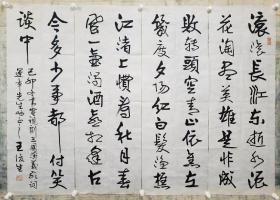 滚滚长江东逝水浪
花淘尽英雄是非成
败转头空青山依旧在
几度夕阳红白发渔樵
江渚上惯看秋月春
风一壶浊酒喜相逢古
今多少事都付笑
谈中